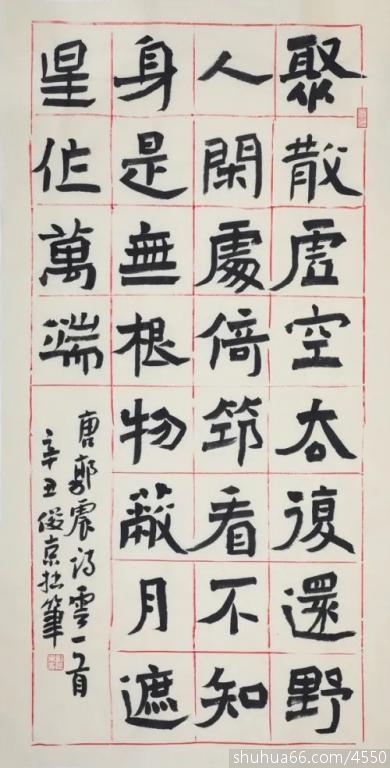 聚散虛空去復還野
人閑處倚筇看不知
身是無根物蔽月遮
星作萬端
唐郭震詩雲一首
辛丑俊京拙筆
shuhua66.com/4550